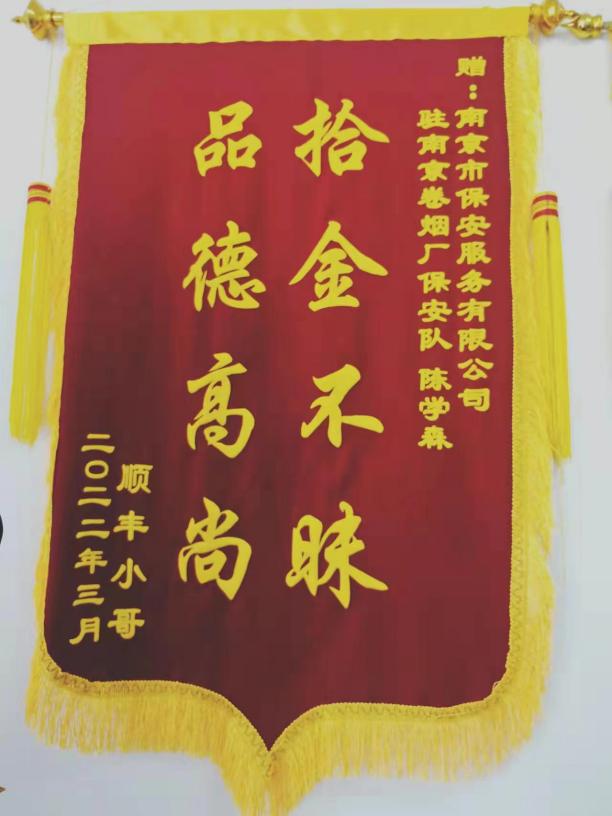 赠：南京市保安服务有限公司
驻南京卷烟厂保安队 陈学森
拾金不昧
品德高尚
顺丰小哥
二〇二二年三月